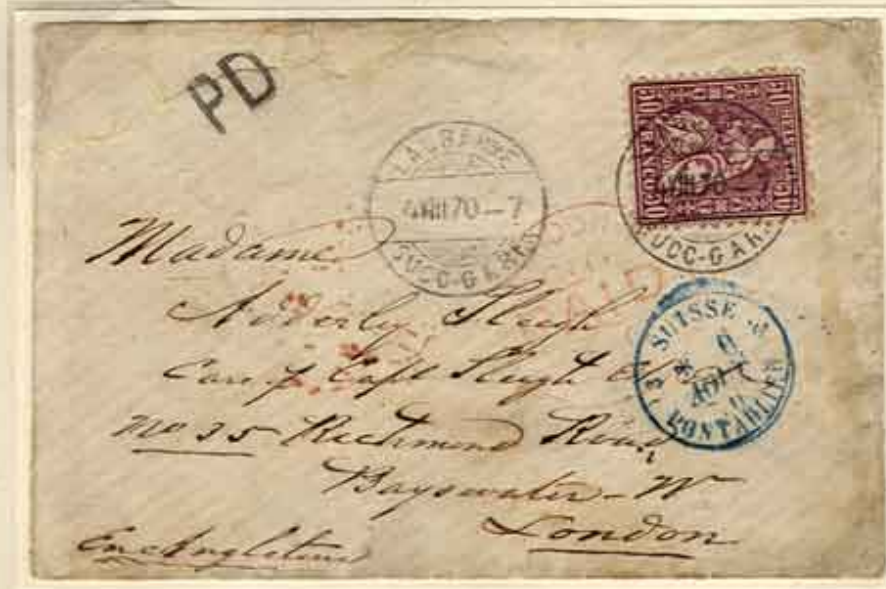 PD
LAUSANNE
4 VIII 70 - 7
SUCC-GARE
50 HELVETIA 50
FRANCO
VIII 70
SUCC-GARE
PAID
SUISSE
AOUT
PONTARLIER
Madame
Sleigh
Care of Capt Sleigh
No 35 Richmond Road
Bayswater - W
London
En Angleterre